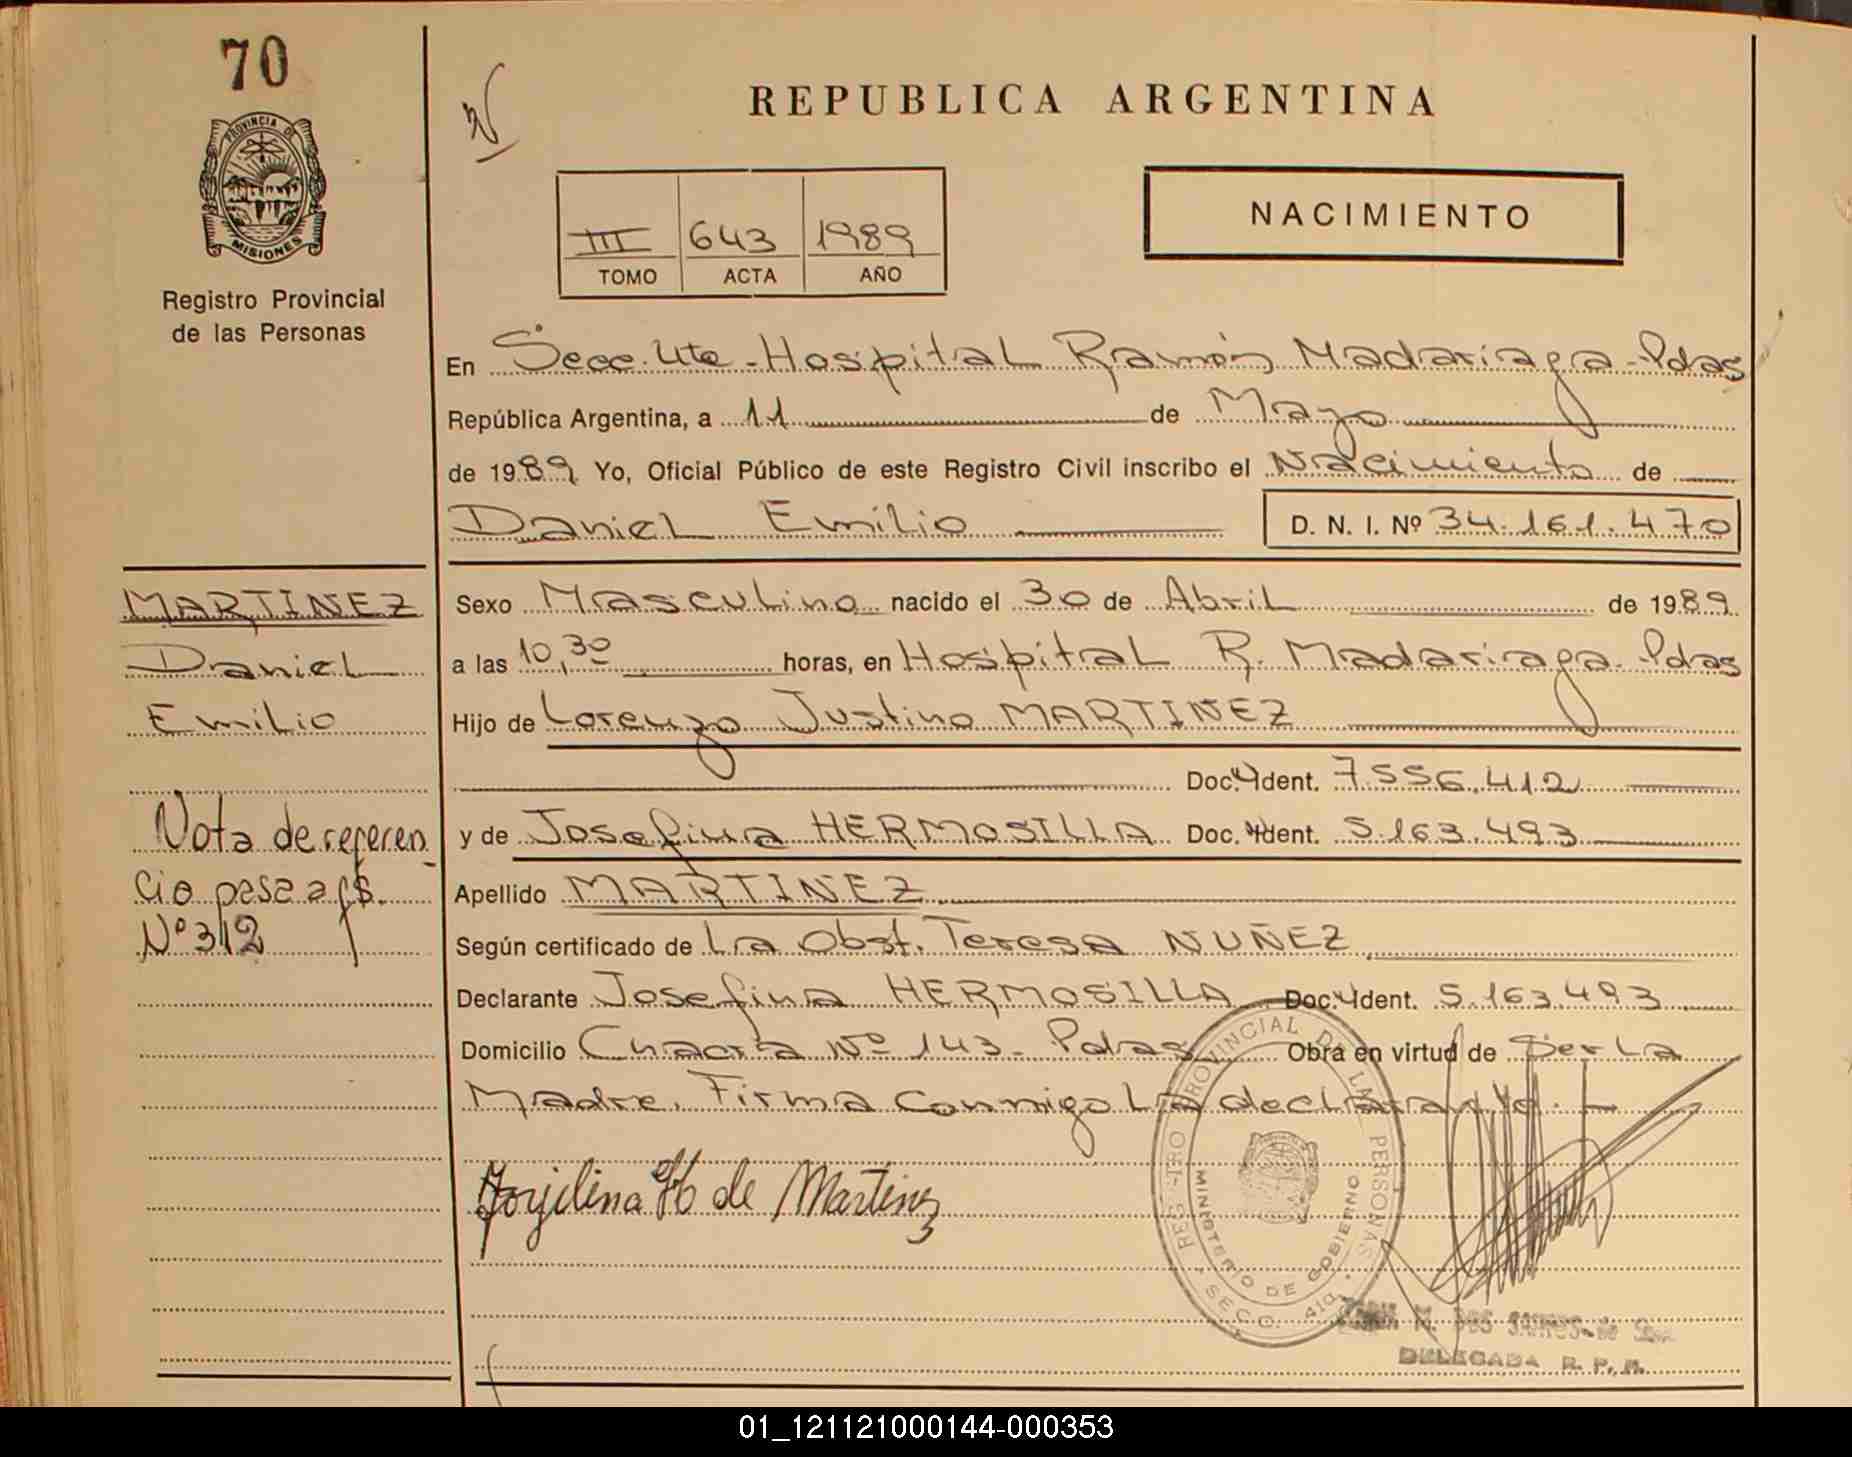 70
PROVINCIA DE
MISIONES
Registro Provincial
de las Personas
REPUBLICA ARGENTINA
NACIMIENTO
III 643 1989
TOMO ACTA AÑO
En Secc. 4ta - Hospital Ramón Madariaga - Pdas
República Argentina, a 11 de Mayo
de 1989 Yo, Oficial Público de este Registro Civil inscribo el Nacimiento de
Daniel Emilio D. N. I. Nº 34.161.470
MARTINEZ
Daniel
Emilio
Nota de referen
cia pasa a fs.
Nº 312
Sexo Masculino nacido el 30 de Abril de 1989
a las 10,30 horas, en Hospital R. Madariaga. Pdas
Hijo de Lorenzo Justino MARTINEZ
Doc. Ident. 7.556.412
y de Josefina HERMOSILLA Doc. Ident. 5.163.493
Apellido MARTINEZ
Según certificado de La Obst. Teresa NUÑEZ
Declarante Josefina HERMOSILLA Doc. Ident. 5.163.493
Domicilio Chacra Nº 143 - Pdas Obra en virtud de Ser La
Madre. Firma conmigo La declarante. -
H de Martinez
REGISTRO PROVINCIAL DE LAS PERSONAS
MINISTERIO DE GOBIERNO
SECC. 4ta
M. DOS SANTOS de
DELEGADA R. P. P.
01_121121000144-000353